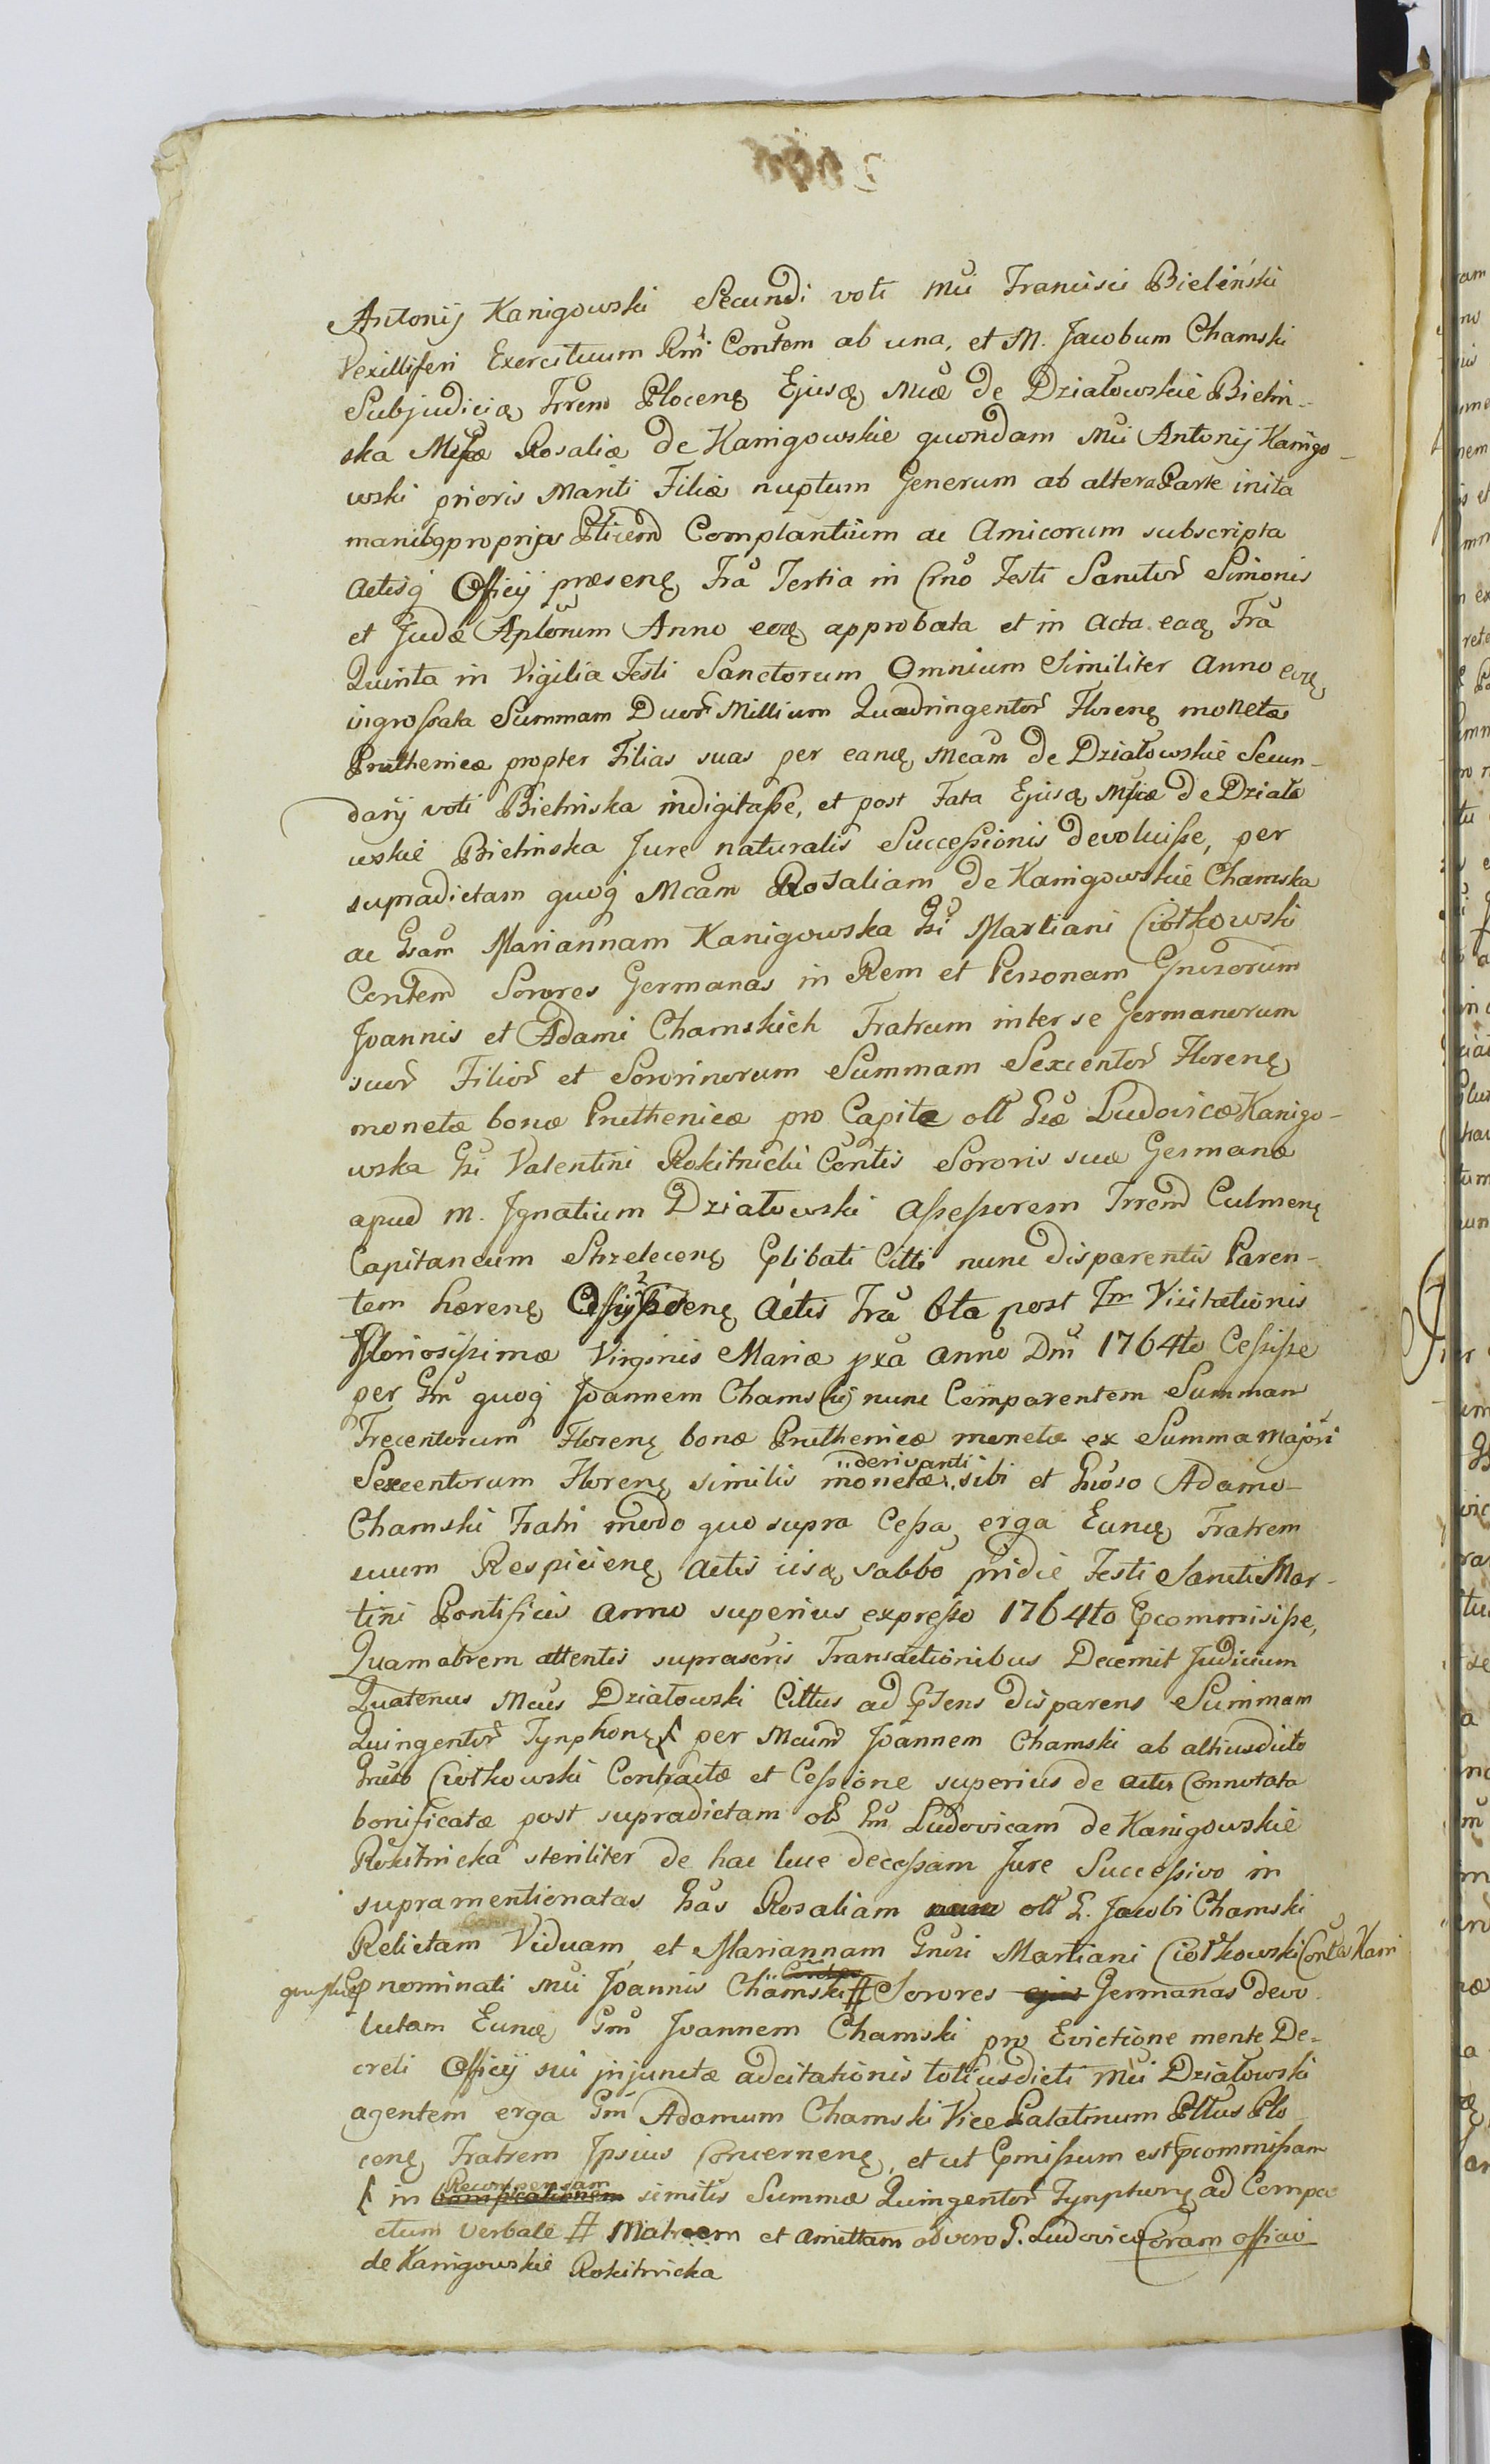 Antonij Kanigowski Secundi voti Mci Francisci Bieliński
Vexilliferi Exercituum Rni Contem ab una, et M. Jacobum Chamski
Subjudicią Trrem Plocenę Ejusą Mcæ de Działowskie Bielin-
ska Mcæ Rosaliæ de Kanigowskie quondam Mci Antonij Kanigo-
wski prioris Mariti Filiæ nuptum Generum ab altera Parte inita
manibq proprijs Ptium Complantium ac Amicorum subscripta
Actisq Officij præsenę Fra Tertia in Crno Festi Sanctor Simonis
et Judæ Aplorum Anno eoę approbata et in Acta eaę Fra
Quinta in Vigilia Festi Sanctorum Omnium Similiter Anno eoę
ingrossata Summam Duor Millium Quadringentor Florenę moneta
Pruthenicæ propter Filias suas per eanę Mcam de Działowskie Secun-
darij voti Bielinska indigitasse, et post Fata Ejusą Mcæ de Działo
wskie Bielinska Jure naturalis Successionis devoluisse, per
supradictam quoq Mcam Rosaliam de Kanigowskie Chamska
ac Gsam Mariannam Kanigowska Gsi Martiani Ciołkowski
Contem Sorores Germanas in Rem et Personam Gnerorum
Joannis et Adami Chamskich Fratrum inter se Germanorum
suor Filior et Sororinorum Summam Sexcentor Florenę
moneta bonæ Pruthenicæ pro Capite oll Gsæ Ludovicæ Kanigo-
wska Gsi Valentini Rokitnicki Contis Sororis suæ Germanæ
apud M. Ignatium Działowski Assessorem Trrem Culmenę
Capitaneum Strzelecenę Plibati Citti nunc disparentis Paren-
tem hærenę Actis Fra 6ta post Fm Visitationis
Gloriosissimæ Virginis Mariæ pxa anno Dni 1764to Cessisse
per Gm quoq Joannem Chamski nunc Comparentem Summam
Trecentorum Florenę bonæ Pruthenicæ monetæ ex Summa majori
derivanti
Sexcentorum Florenę similis monetæ sibi et Gnoso Adamo
Chamski Fratri modo quo supra Cessa, erga Eunę Fratrem
suum Respicienę Actis iisą sabbo pridie Festi Sancti Mar-
tini Pontificis anno superius expresso 1764to Pcommisisse,
Quamobrem attentis suprascris Transactionibus Decernit Judicium
Quatenus Mcus Działowski Cittus ad Psens disparens Summam
Quingentor Tynphonę per Mcum Joannem Chamski ab altiusdicto
Gnso Ciołkowski Contractæ et Cessione superius de actis Connotata
bonificatæ post supradictam oll Gm Ludovicam de Kanigowskie
Rokitnicka steriliter de hac luce decessam Jure Successivo in
supramentionatas Gsas Rosaliam oll G. Jacobi Chamski
Relictam Viduam, et Mariannam Gnsi Martiani Ciołkowski
Pnominati Mci Joannis Chamski # Sorores Germanas devo
lutam Eunę Gm Joannem Chamski pro Evictione mente De-
creti Officij sui injunctæ adcitationis totiusdicti Mci Działowski
agentem erga Gm Adamum Chamski Vice Palatinum Pttus Plo
cenę Fratrem Ipsius Concernenę, et ut Pmissum est Pcommissam
Recompensam
in similis Summæ Quingentor Tynphonę ad Compa
ctum Verbale # Matrem et Amittam ad vero G. Ludovica Coram officio
de Kanigowskie Rokitnicka